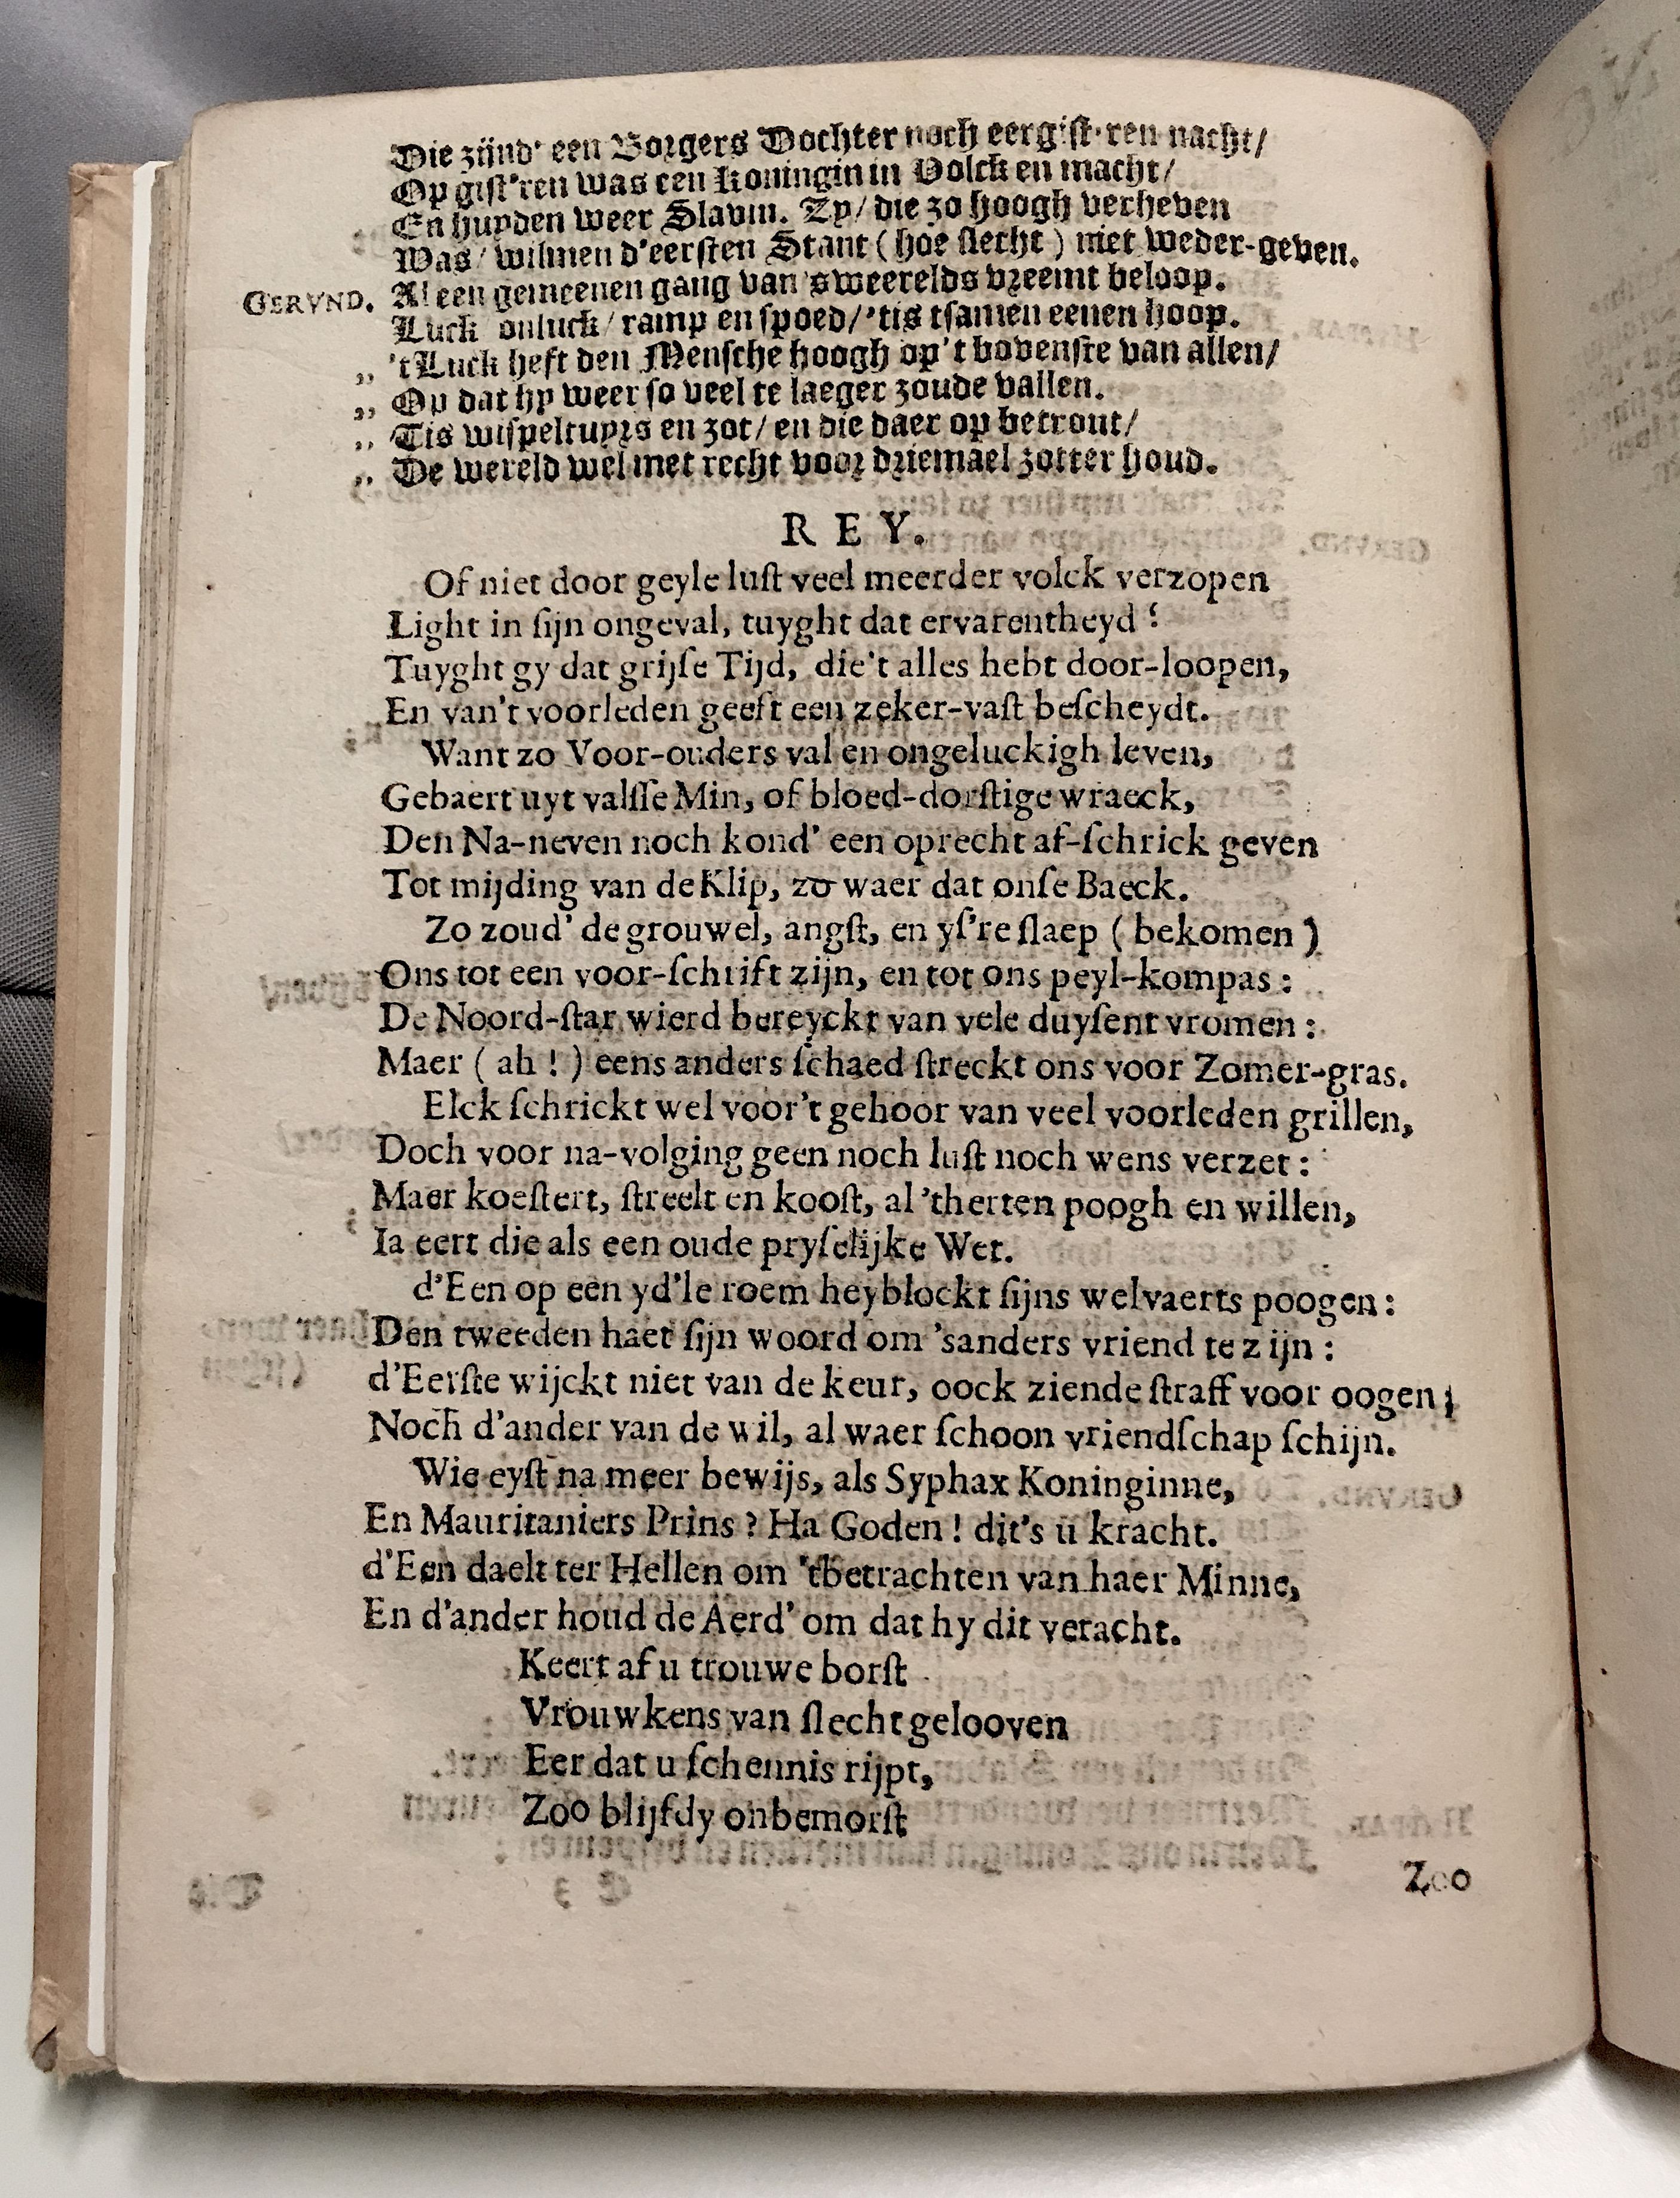 Die zijnd' een Borgers Dochter noch eergist'ren nacht/
Op gist'ren was een Koningin in Volck en macht/
En huyden weer Slavin. Zy/ die zo hoogh verheven
Was/ wilmen d'eersten Stant (hoe slecht) niet weder-geven.
GERVND. Al een gemeenen gang van 'sweerelds vreemt beloop.
Luck onluck/ ramp en spoed/ 'tis tsamen eenen hoop.
„ 'tLuck heft den Mensche hoogh op't bovenste van allen/
„ Op dat hy weer so veel te laeger zoude vallen.
„ Tis wispeltuyrs en zot/ en die daer op betrout/
„ De wereld wel met recht voor driemael zotter houd.
REY.
Of niet door geyle luſt veel meerder volck verzopen
Light in ſijn ongeval, tuyght dat ervarentheyd?
Tuyght gy dat grijſe Tijd, die't alles hebt door-loopen,
En van't voorleden geeft een zeker-vaſt beſcheydt.
Want zo Voor-ouders val en ongeluckigh leven,
Gebaert uyt valſſe Min, of bloed-dorſtige wraeck,
Den Na-neven noch kond' een oprecht af-ſchrick geven
Tot mijding van de Klip, zo waer dat onſe Baeck.
Zo zoud' de grouwel, angſt, en yſ're ſlaep ( bekomen )
Ons tot een voor-ſchrift zijn, en tot ons peyl-kompas :
De Noord-ſtar wierd bereyckt van vele duyſent vromen :
Maer ( ah ! ) eens anders ſchaed ſtreckt ons voor Zomer-gras.
Elck ſchrickt wel voor't gehoor van veel voorleden grillen,
Doch voor na-volging geen noch luſt noch wens verzet :
Maer koeſtert, ſtreelt en kooſt, al 'therten poogh en willen,
Ia eert die als een oude pryſelijke Wet.
d'Een op een yd'le roem heyblockt ſijns welvaerts poogen :
Den tweeden haet ſijn woord om 'sanders vriend te zijn :
d'Eerſte wijckt niet van de keur, oock ziende ſtraff voor oogen;
Noch d'ander van de wil, al waer ſchoon vriendſchap ſchijn.
Wie eyſt na meer bewijs, als Syphax Koninginne,
En Mauritaniers Prins ? Ha Goden ! dit's u kracht.
d'Een daelt ter Hellen om 'tbetrachten van haer Minne,
En d'ander houd de Aerd' om dat hy dit veracht.
Keert af u trouwe borſt
Vrouwkens van ſlecht gelooven
Eer dat u ſchennis rijpt,
Zoo blijfdy onbemorſt
Zoo